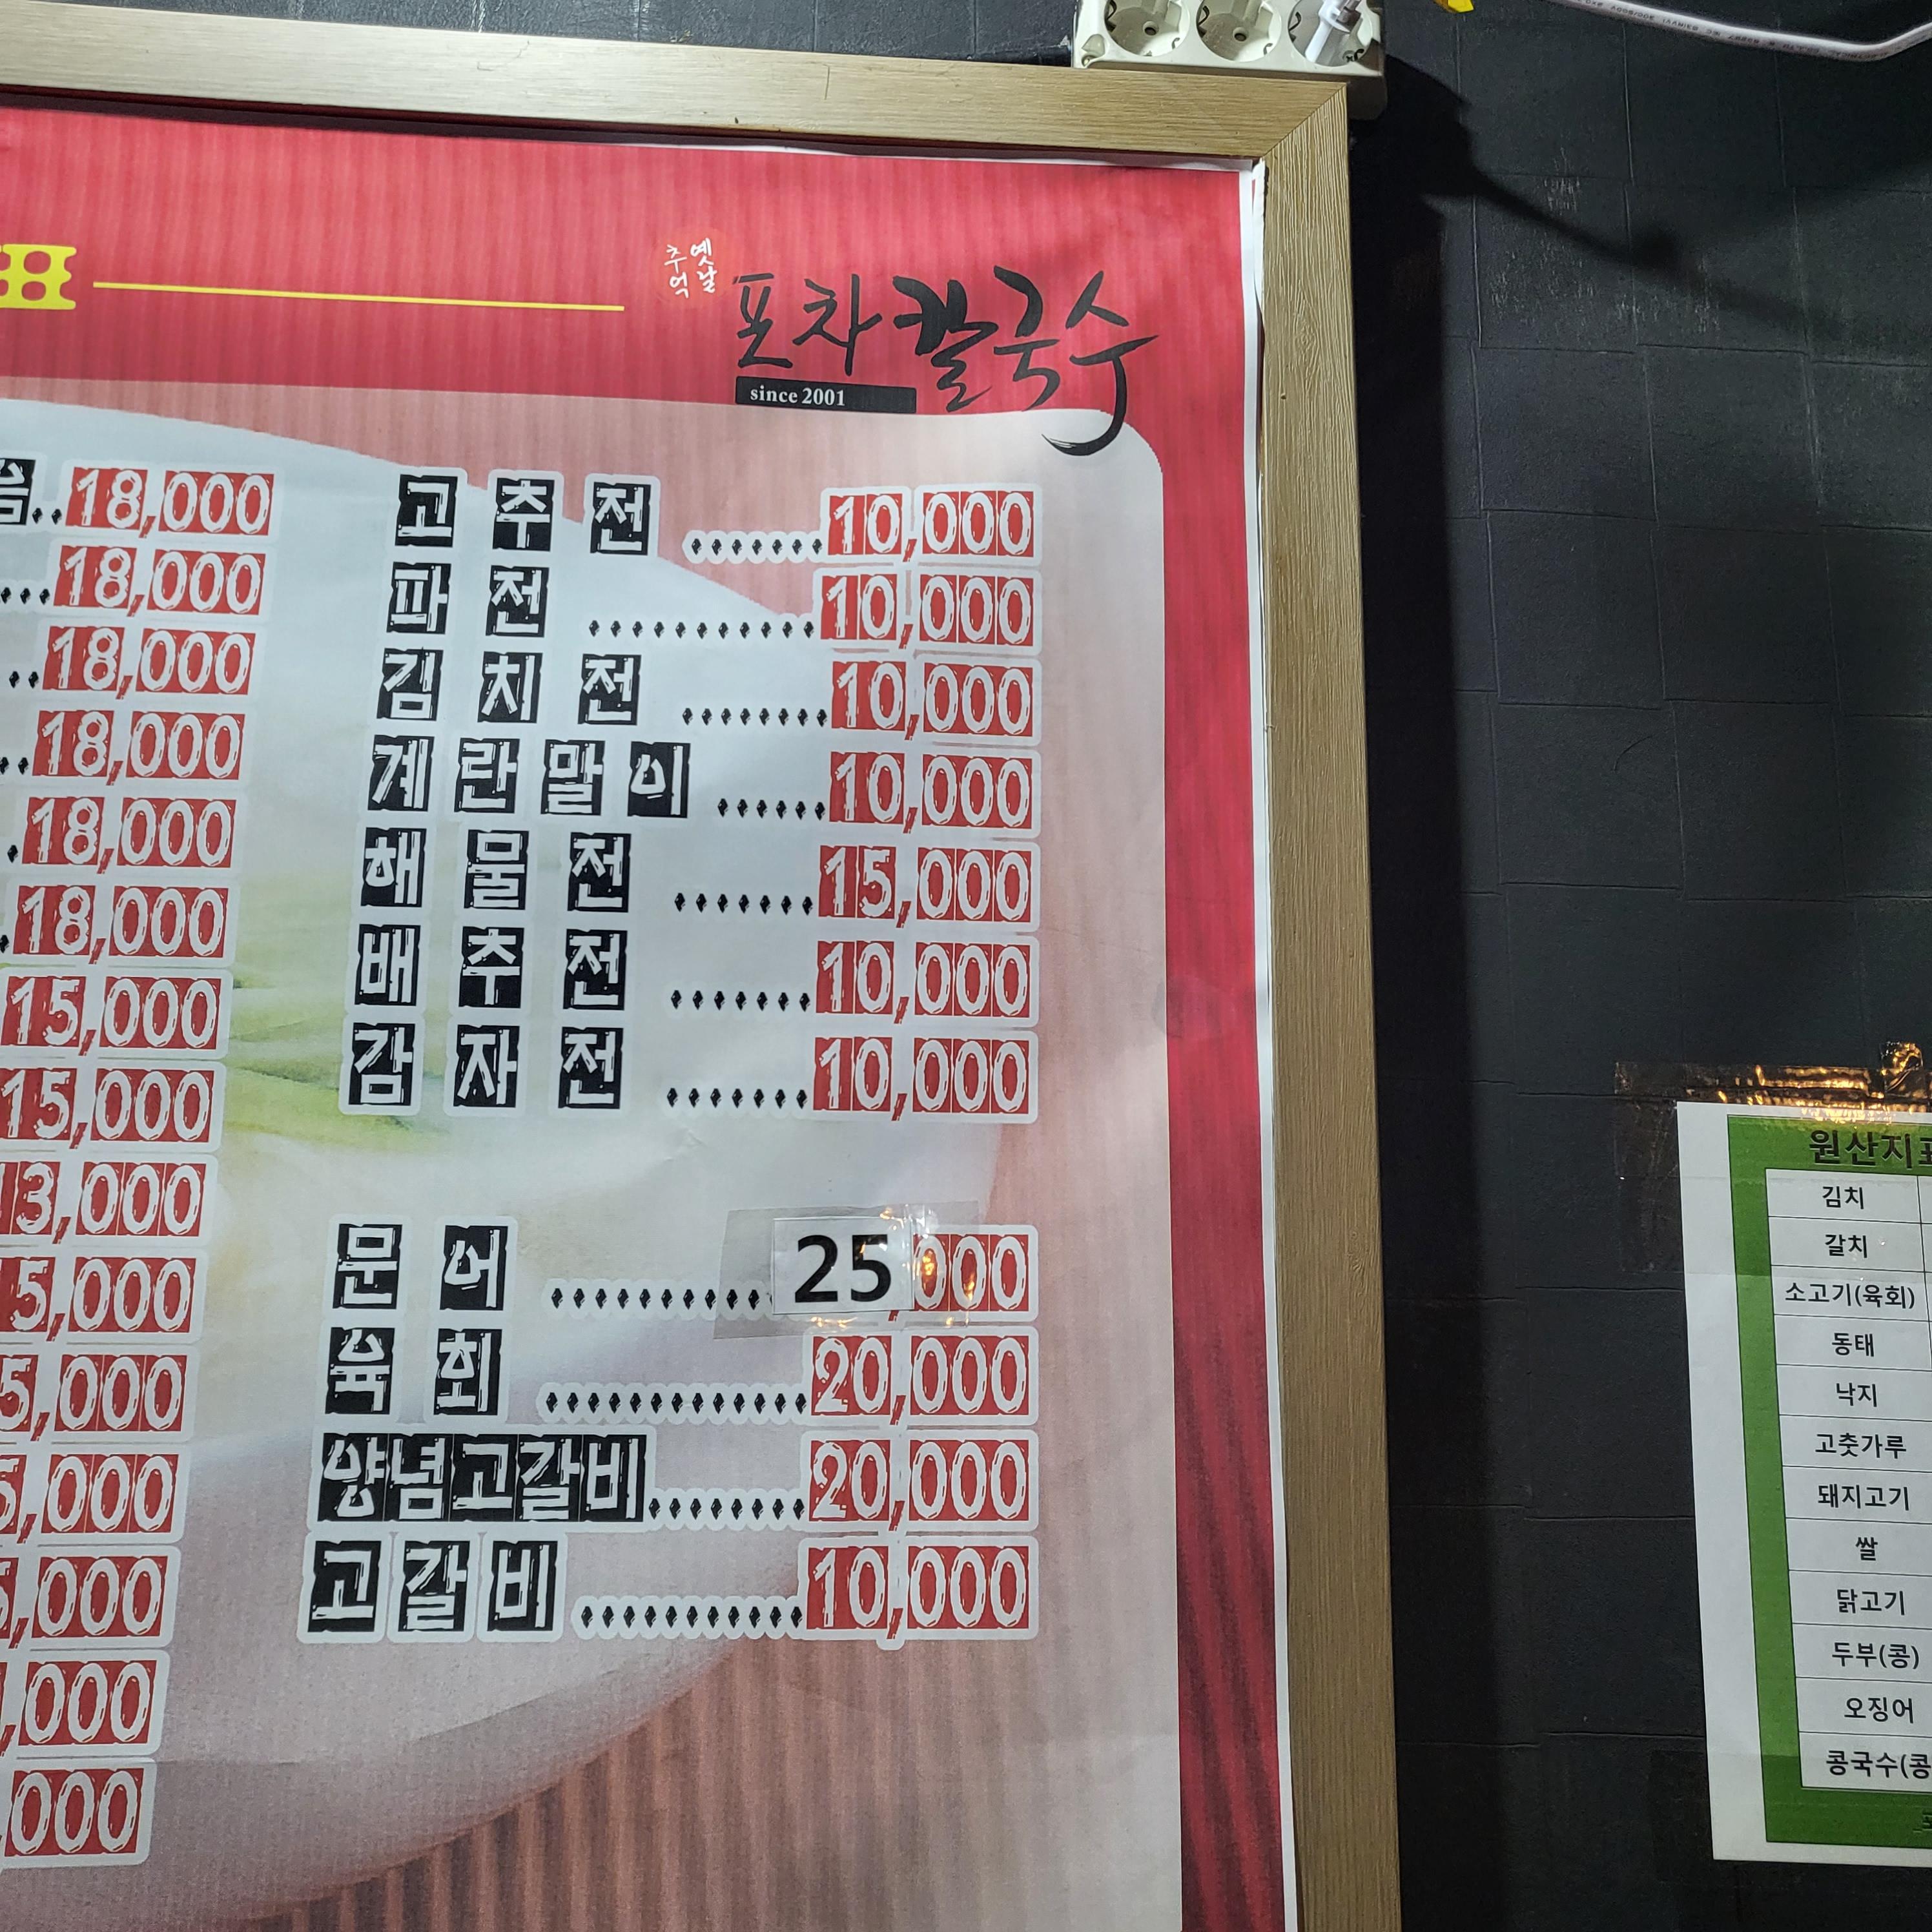 표
옛날
추억
포차칼국수
since 2001
18,000
18,000
18,000
18,000
18,000
18,000
15,000
15,000
13,000
5,000
5,000
5,000
,000
,000
000
고추전.......10,000
파전...........10,000
김치전........10,000
계란말이......10,000
해물전.......15,000
배추전.......10,000
감자전.......10,000
문어...........25,000
육회............20,000
양념고갈비........20,000
고갈비...........10,000
원산지표
김치
갈치
소고기(육회)
동태
낙지
고춧가루
돼지고기
쌀
닭고기
두부(콩)
오징어
콩국수(콩